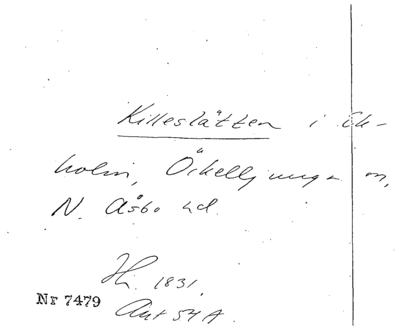 Killeslätten i Ek-
holm, Örkelljunga sn,
N. Åsbo hd.
Hi. 1831.
Nr 7479
Akt 54 A.